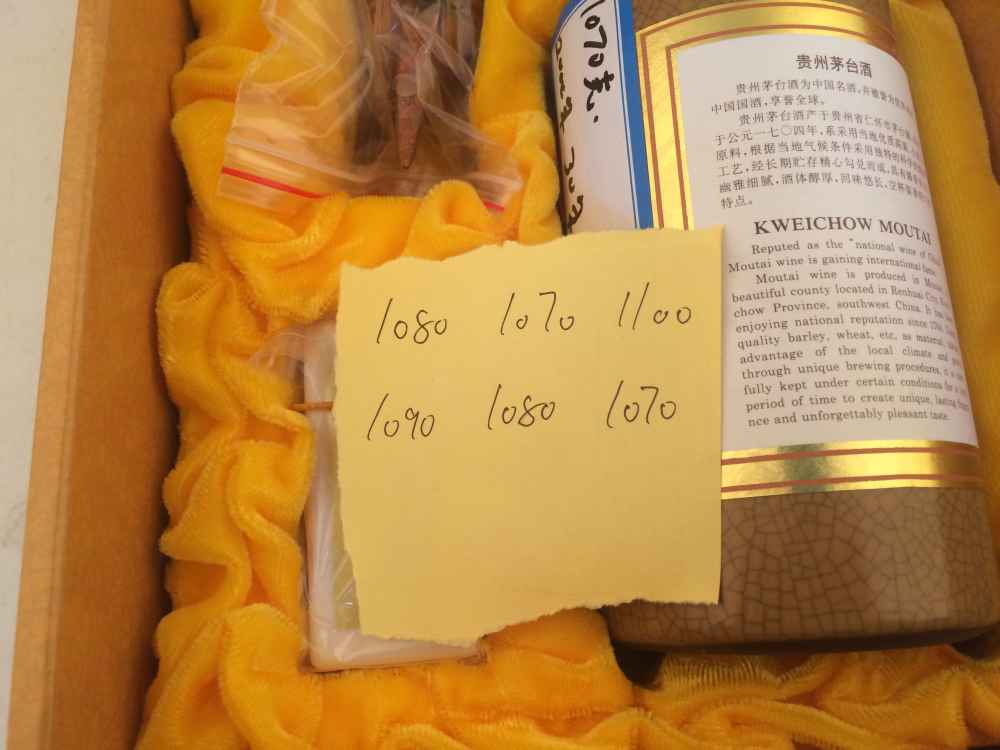 1070克.
贵州茅台酒
贵州茅台酒为中国名酒,并被誉为
中国国酒,享誉全球。
贵州茅台酒产于贵州省仁怀市茅台镇,
于公元一七〇四年,系采用当地优质高粱、
原料,根据当地气候条件采用独特的科学
工艺,经长期贮存精心勾兑而成,具有
幽雅细腻,酒体醇厚,回味悠长,空杯
特点。
KWEICHOW MOUTAI
Reputed as the "national wine of
Moutai wine is gaining international fame.
Moutai wine is produced in
beautiful county located in Renhuai City,
chow Province, southwest China. It has
enjoying national reputation since 1704.
quality barley, wheat, etc, as material,
advantage of the local climate and
through unique brewing procedures, it is
fully kept under certain conditions for a
period of time to create unique, lasting
nce and unforgettably pleasant taste.
1080 1070 1100
1090 1080 1070